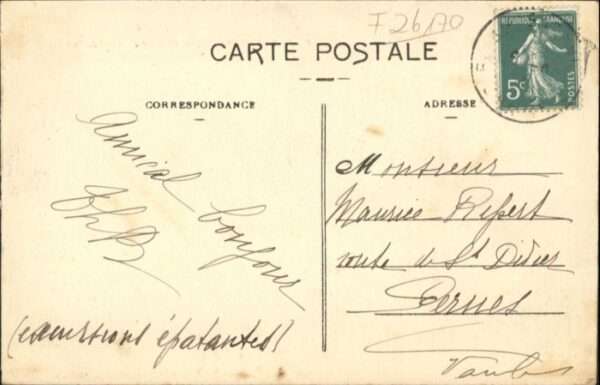 F 26170
CARTE POSTALE
CORRESPONDANCE
ADRESSE
REPUBLIQUE FRANÇAISE
5c
POSTES
Amical bonjour
ThB
(excursions épatantes)
Monsieur
Maurice Repert
route de St Didier
Pernes